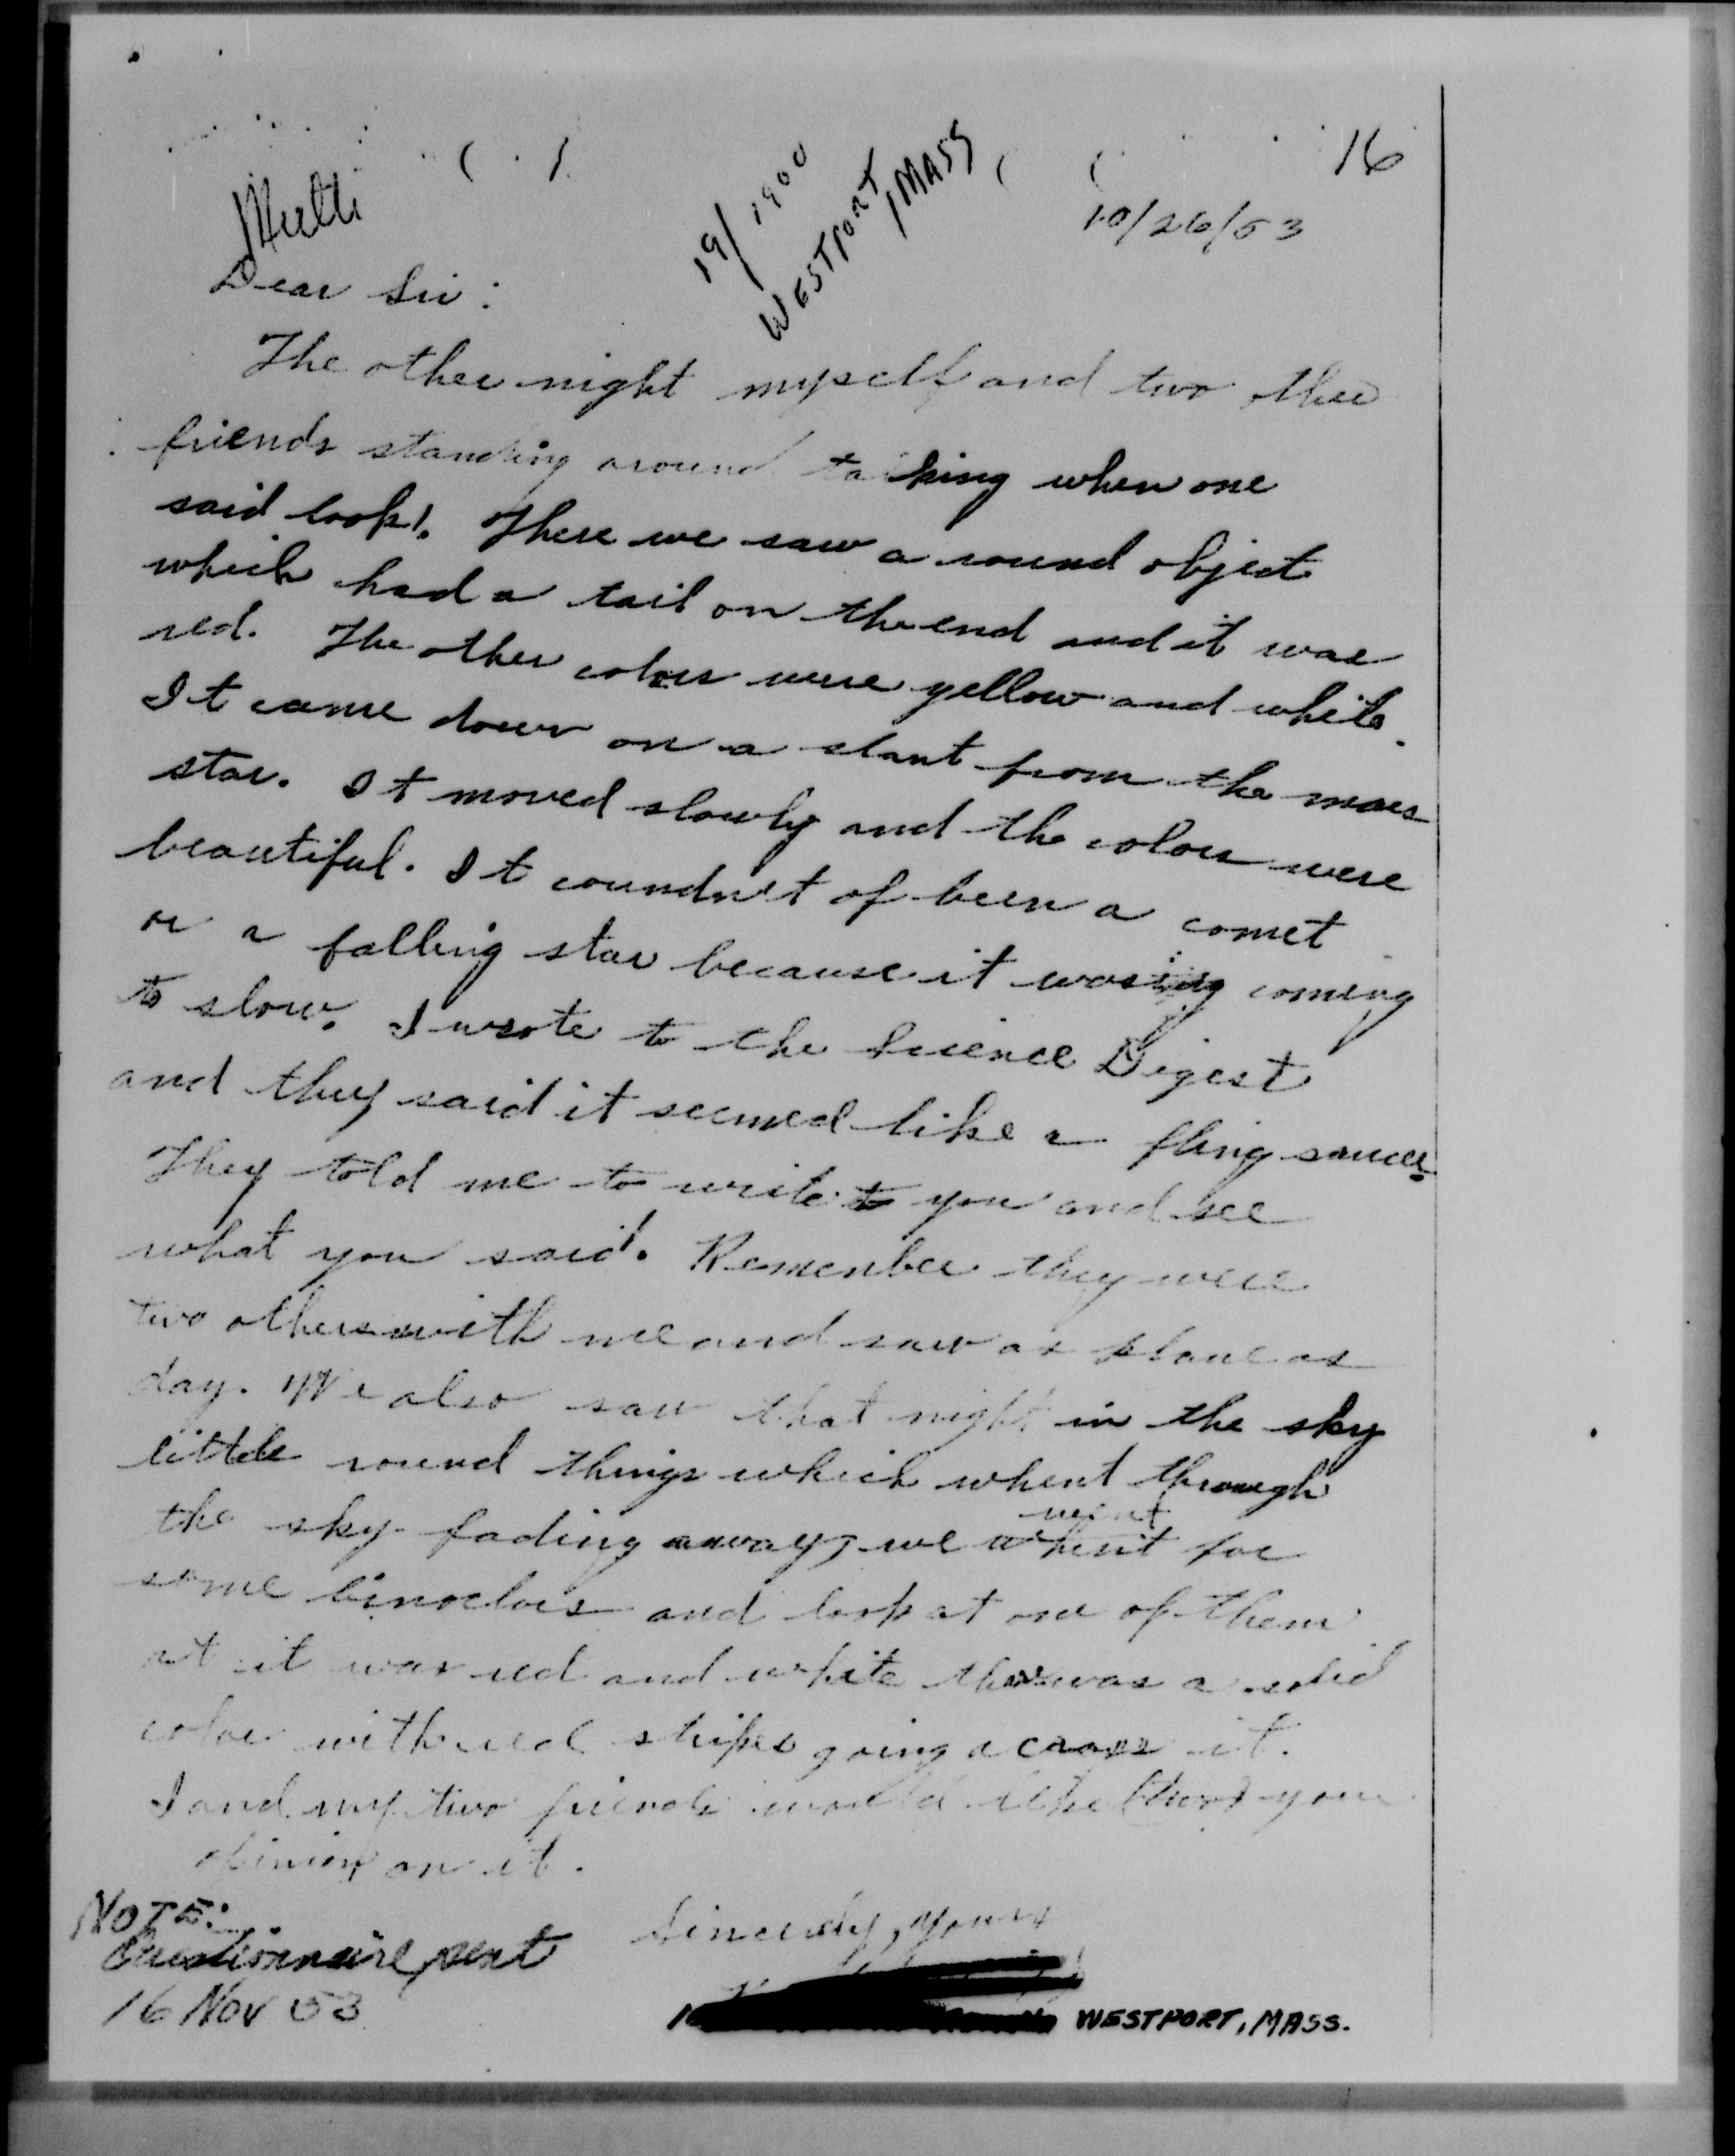 16
Multi
19/1900
WESTPORT, MASS
10/26/53
Dear Sir:
The other night myself and two other
friends standing around talking when one
said look! There we saw a round object
which had a tail on the end and it was
red. The other colors were yellow and white.
It came down on a slant from the mars
star. It moved slowly and the colors were
beautiful. It coundn't of been a comet
or a falling star because it was coming
to slow. I wrote to the Science Digest
and they said it seemed like a fling saucer.
They told me to write to you and see
what you said. Remember they were
two others with me and saw as plane as
day. We also saw that night in the sky
little round things which whent through
the sky fading away, we went for
some binoclors and look at one of them
at it was red and white was a solid
color with red stripes going across it.
I and my two friends would like your
opinion on it.
Sincerely, yours
NOTE:
Questionnaire sent
16 Nov 53
WESTPORT, MASS.